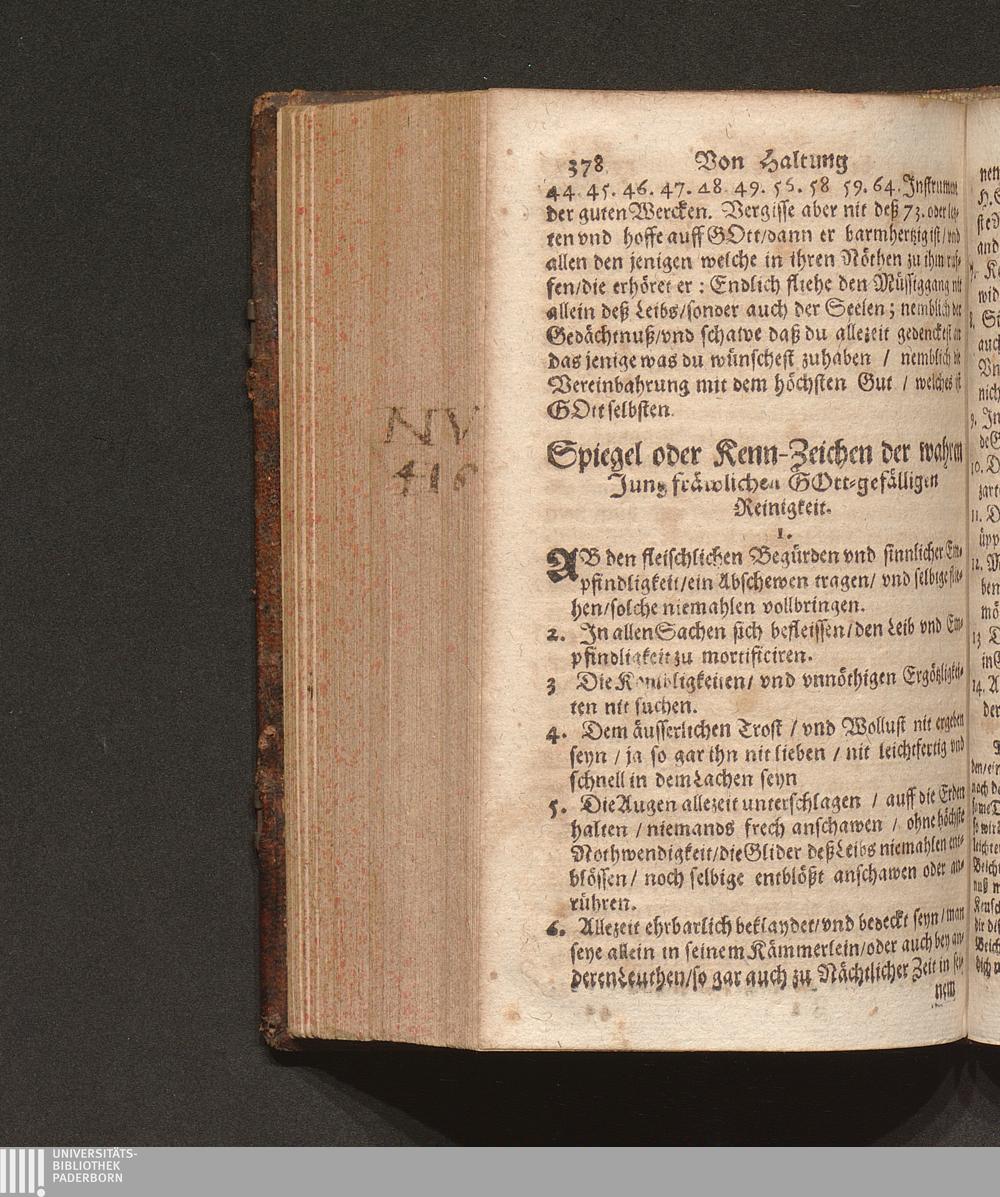 378 Von Haltung
44. 45. 46. 47. 48. 49. 56. 58 59. 64. Instrument
der guten Wercken. Vergisse aber nit deß 73. oder letz-
ten vnd hoffe auff GOtt/dann er barmhertzig ist/vnd
allen den jenigen welche in ihren Nöthen zu ihm ruf-
fen/die erhöret er : Endlich fliehe den Müssiggang nit
allein deß Leibs/sonder auch der Seelen; nemblich der
Gedächtnuß/vnd schawe daß du allezeit gedenckest an
das jenige was du wünschest zuhaben / nemblich die
Vereinbahrung mit dem höchsten Gut / welches ist
GOtt selbsten.
Spiegel oder Kenn-Zeichen der wahren
Jungfräwlichen GOtt-gefälligen
Reinigkeit.
1.
AB den fleischlichen Begürden vnd sinnlicher Em-
pfindligkeit/ein Abschewen tragen/ vnd selbige flie-
hen/solche niemahlen vollbringen.
2. In allen Sachen sich befleissen/den Leib vnd Em-
pfindligkeit zu mortificiren.
3 Die vnd vnnöthigen Ergötzligkei-
ten nit suchen.
4. Dem äusserlichen Trost / vnd Wollust nit ergeben
seyn / ja so gar ihn nit lieben / nit leichtfertig vnd
schnell in dem Lachen seyn
5. Die Augen allezeit unterschlagen / auff die Erden
halten / niemands frech anschawen / ohne höchste
Nothwendigkeit/die Glider deß Leibs niemahlen ent-
blössen / noch selbige entblößt anschawen oder an-
rühren.
6. Allezeit ehrbarlich beklaydet/vnd bedeckt seyn / man
seye allein in seinem Kämmerlein/oder auch bey an-
deren Leuthen/so gar auch zu Nächtlicher Zeit in sei-
nem
NV
416
UNIVERSITÄTS-
BIBLIOTHEK
PADERBORN